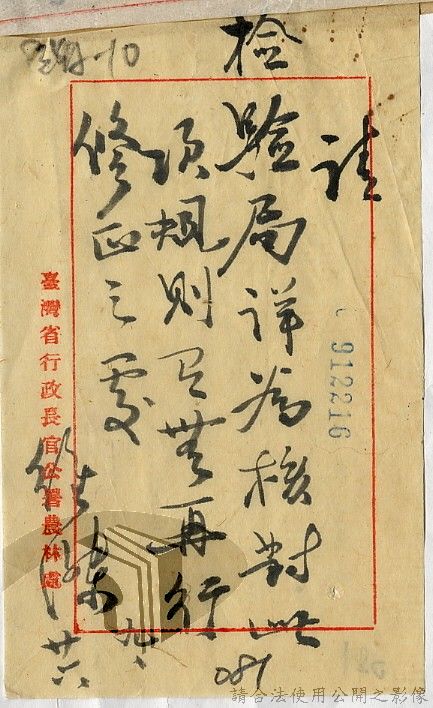 請
檢驗局詳為核對此
項規則有無再行
修正之處
九、廿八
臺灣省行政長官公署農林處
912216
180
請合法使用公開之影像